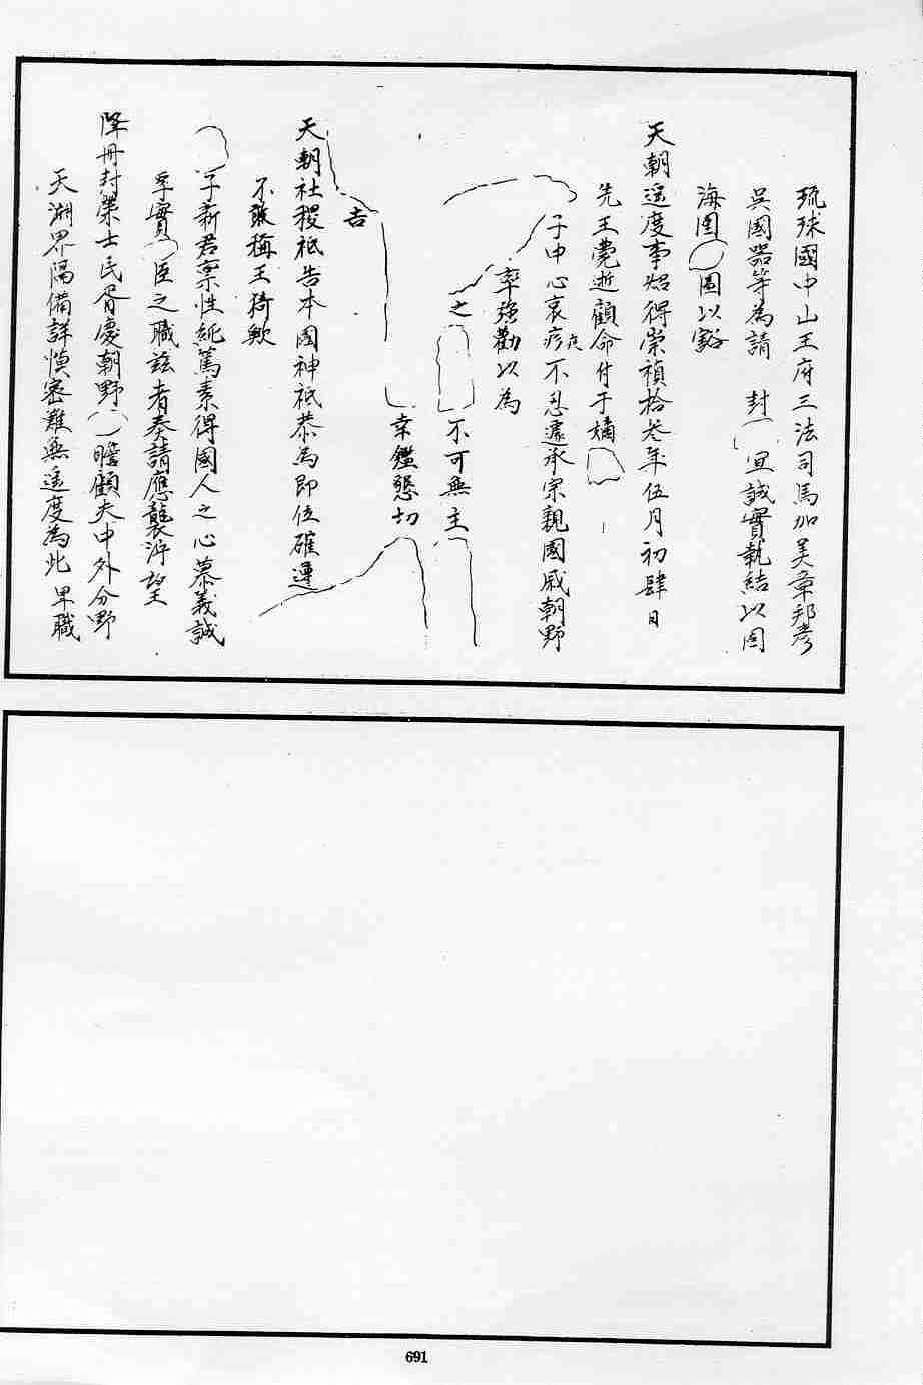 琉球國中山王府三法司馬加美章邦彥
吳國器等為請 封 宜誠實執結以圖
海圉 圖以谿
天朝遥度事炤得崇禎拾叁年伍月初肆日
先王薨逝顧命付于嫡
子中心哀疹疚不忍遽承宗親國戚朝野
率強勸以為
之 不可無主
幸鑑懇切
吉
天朝社稷祇告本國神祇恭為即位確遵
不敢稱王猗歟
子新君稟性純篤素得國人之心慕義誠
孚實 臣之職兹者奏請應襲
降冊封榮士民胥慶朝野 瞻顧夫中外分野
天 界隔備詳慎密難無遥度為此卑職
691